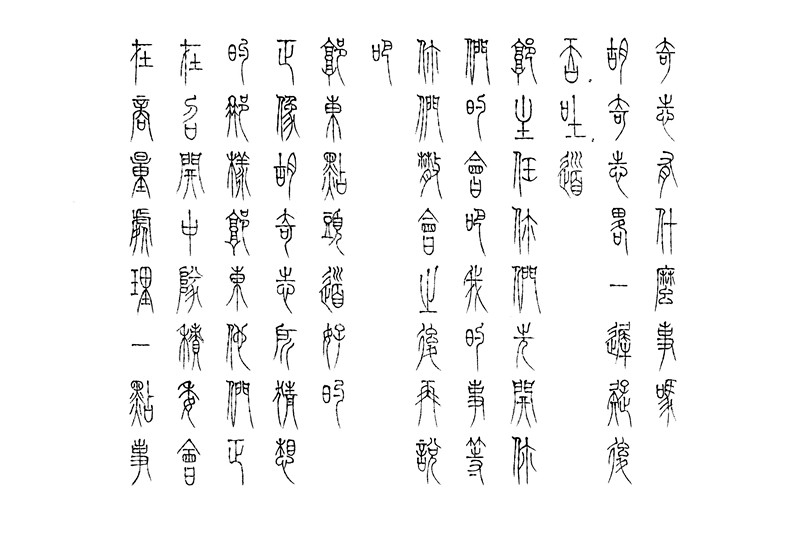 奇志有什麼事嗎
胡奇志畧一遲疑後
吞、吐、道
郭主任你們先開你
們的會吧我的事等
你們散會之後再說
吧
郭東點頭道好的
正像胡奇志所猜想
的那樣郭東他們正
在召開中隊積委會
在商量處理一點事